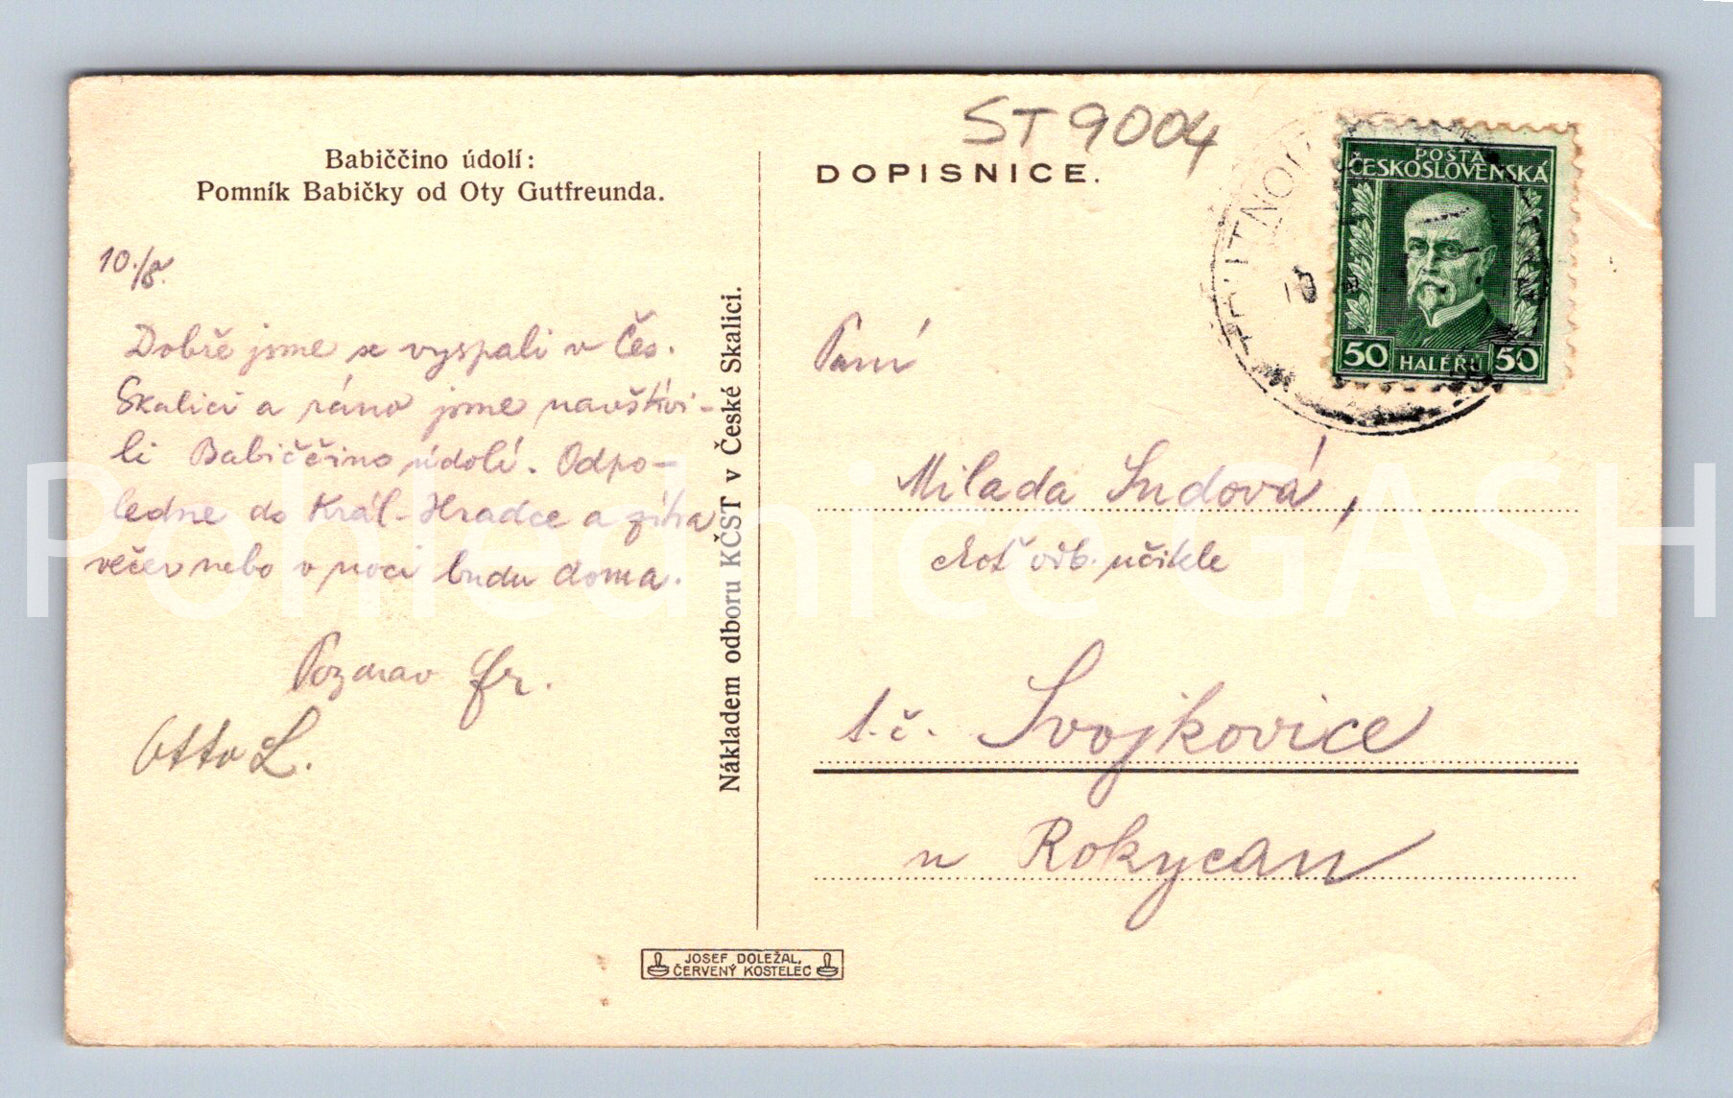 ST 9004
Babiččino údolí:
Pomník Babičky od Oty Gutfreunda.
10./8.
Dobře jsme se vyspali v Čes.
Skalici a ráno jsme navštívi-
li Babiččino údolí. Odpo-
ledne do Král. Hradce a zítra
večer nebo v noci budu doma.
Pozdrav Fr.
Otto L.
Nákladem odboru KČST v České Skalici.
DOPISNICE.
POŠTA
ČESKOSLOVENSKÁ
50 HALÉŘŮ 50
Paní
Milada Sudová,
choť odb. učitele
t.č. Svojkovice
u Rokycan
JOSEF DOLEŽAL,
ČERVENÝ KOSTELEC
Pohlednice GASH